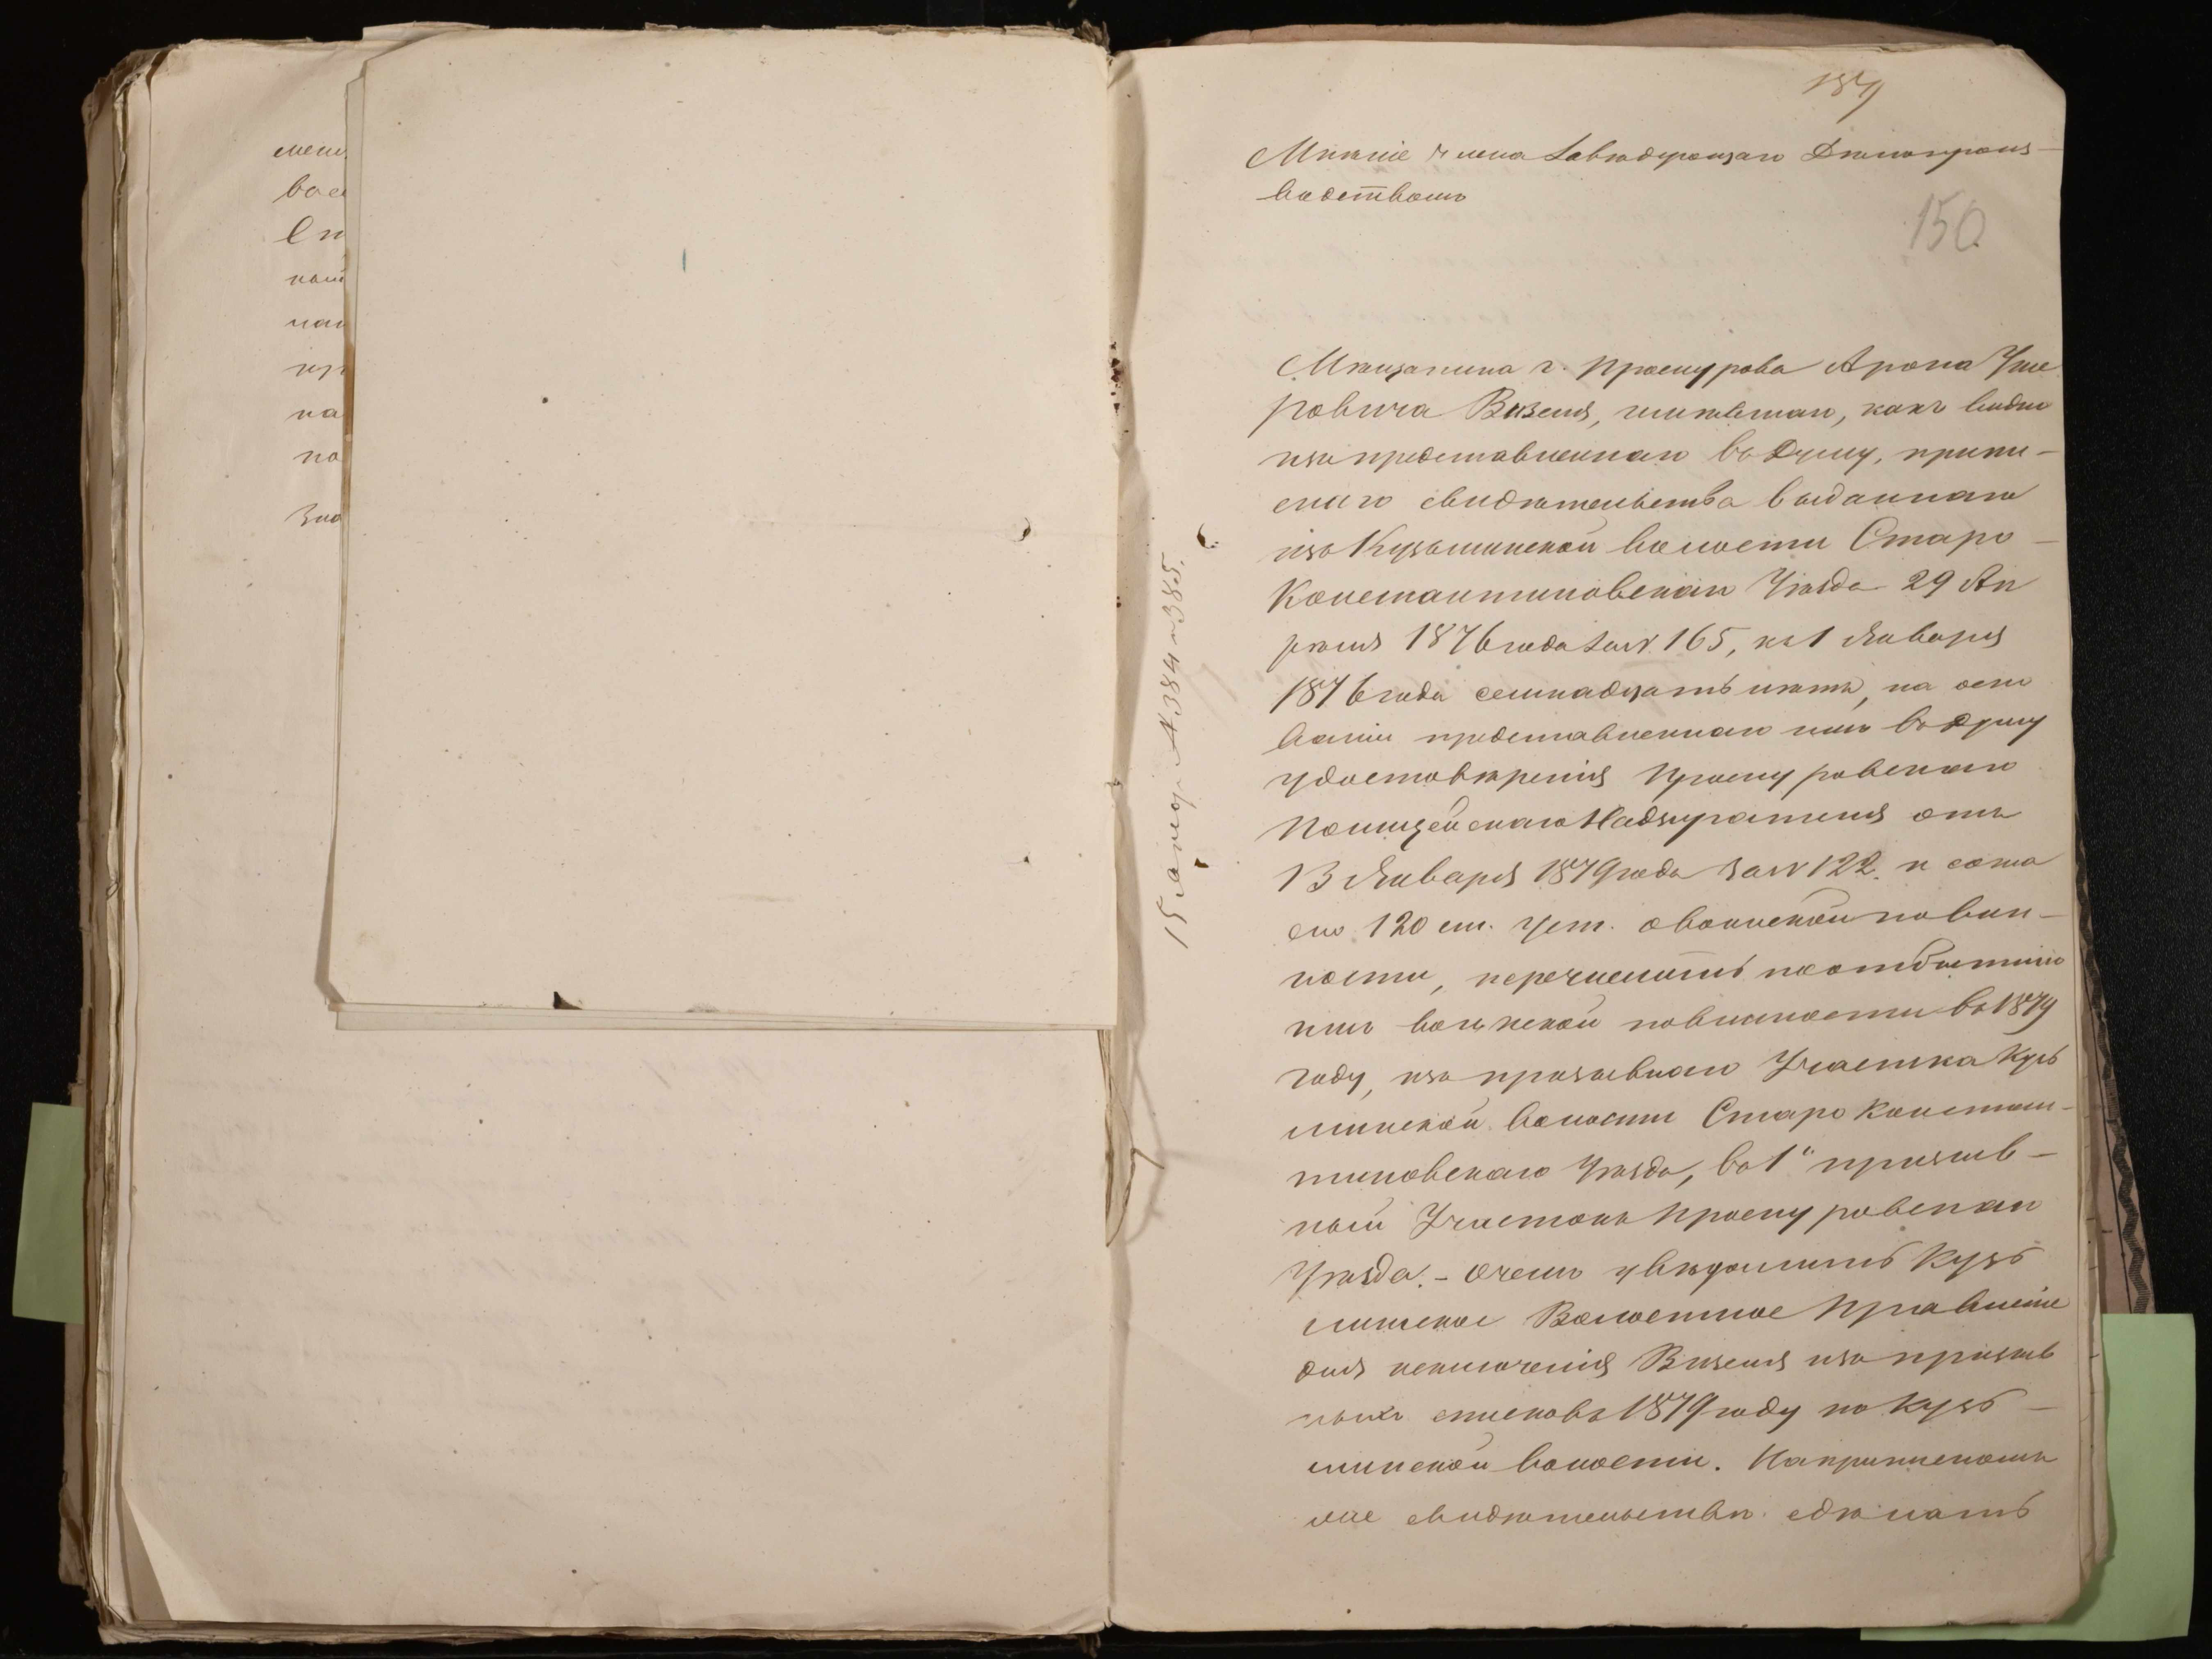 мень
вое
Сп
ный
на
пр
на
по
Зна
15 Января № 384 и 385.
154
150
Мнѣніе Члена Завѣдующаго Дѣлопроиз-
водствомъ
Мѣщанина г. Проскурова Арона Уше
ровича Визеля, имѣвшаго, какъ видно
изъ представленнаго въ Думу, припи-
снаго свидѣтельства выданнаго
изъ Кузьминской волости Старо-
Константиновскаго Уѣзда 29 Ап
рѣля 1876 года за № 165, къ 1 Января
1876 года семнадцать лѣтъ, на осно
ваніи представленнаго имъ въ Думу
удостовѣренія Проскуровскаго
Полицейскаго Надзирателя отъ
13 Января 1879 года за № 122. и согла
сно 120 ст. Уст. о воинской повин-
ности, перечислить по отбытію
имъ воинской повинности въ 1879
году, изъ призывнаго Участка Кузь
минской волости Старо Констан-
тиновскаго Уѣзда, въ 1й призыв-
ный Участокъ Проскуровскаго
Уѣзда. - О чемъ увѣдомить Кузь
минское Волостное Правленіе
для исключенія Визеля изъ призыв
ныхъ списковъ 1879 году по Кузь-
минской волости. На приписномъ
же свидѣтельствѣ сдѣлать